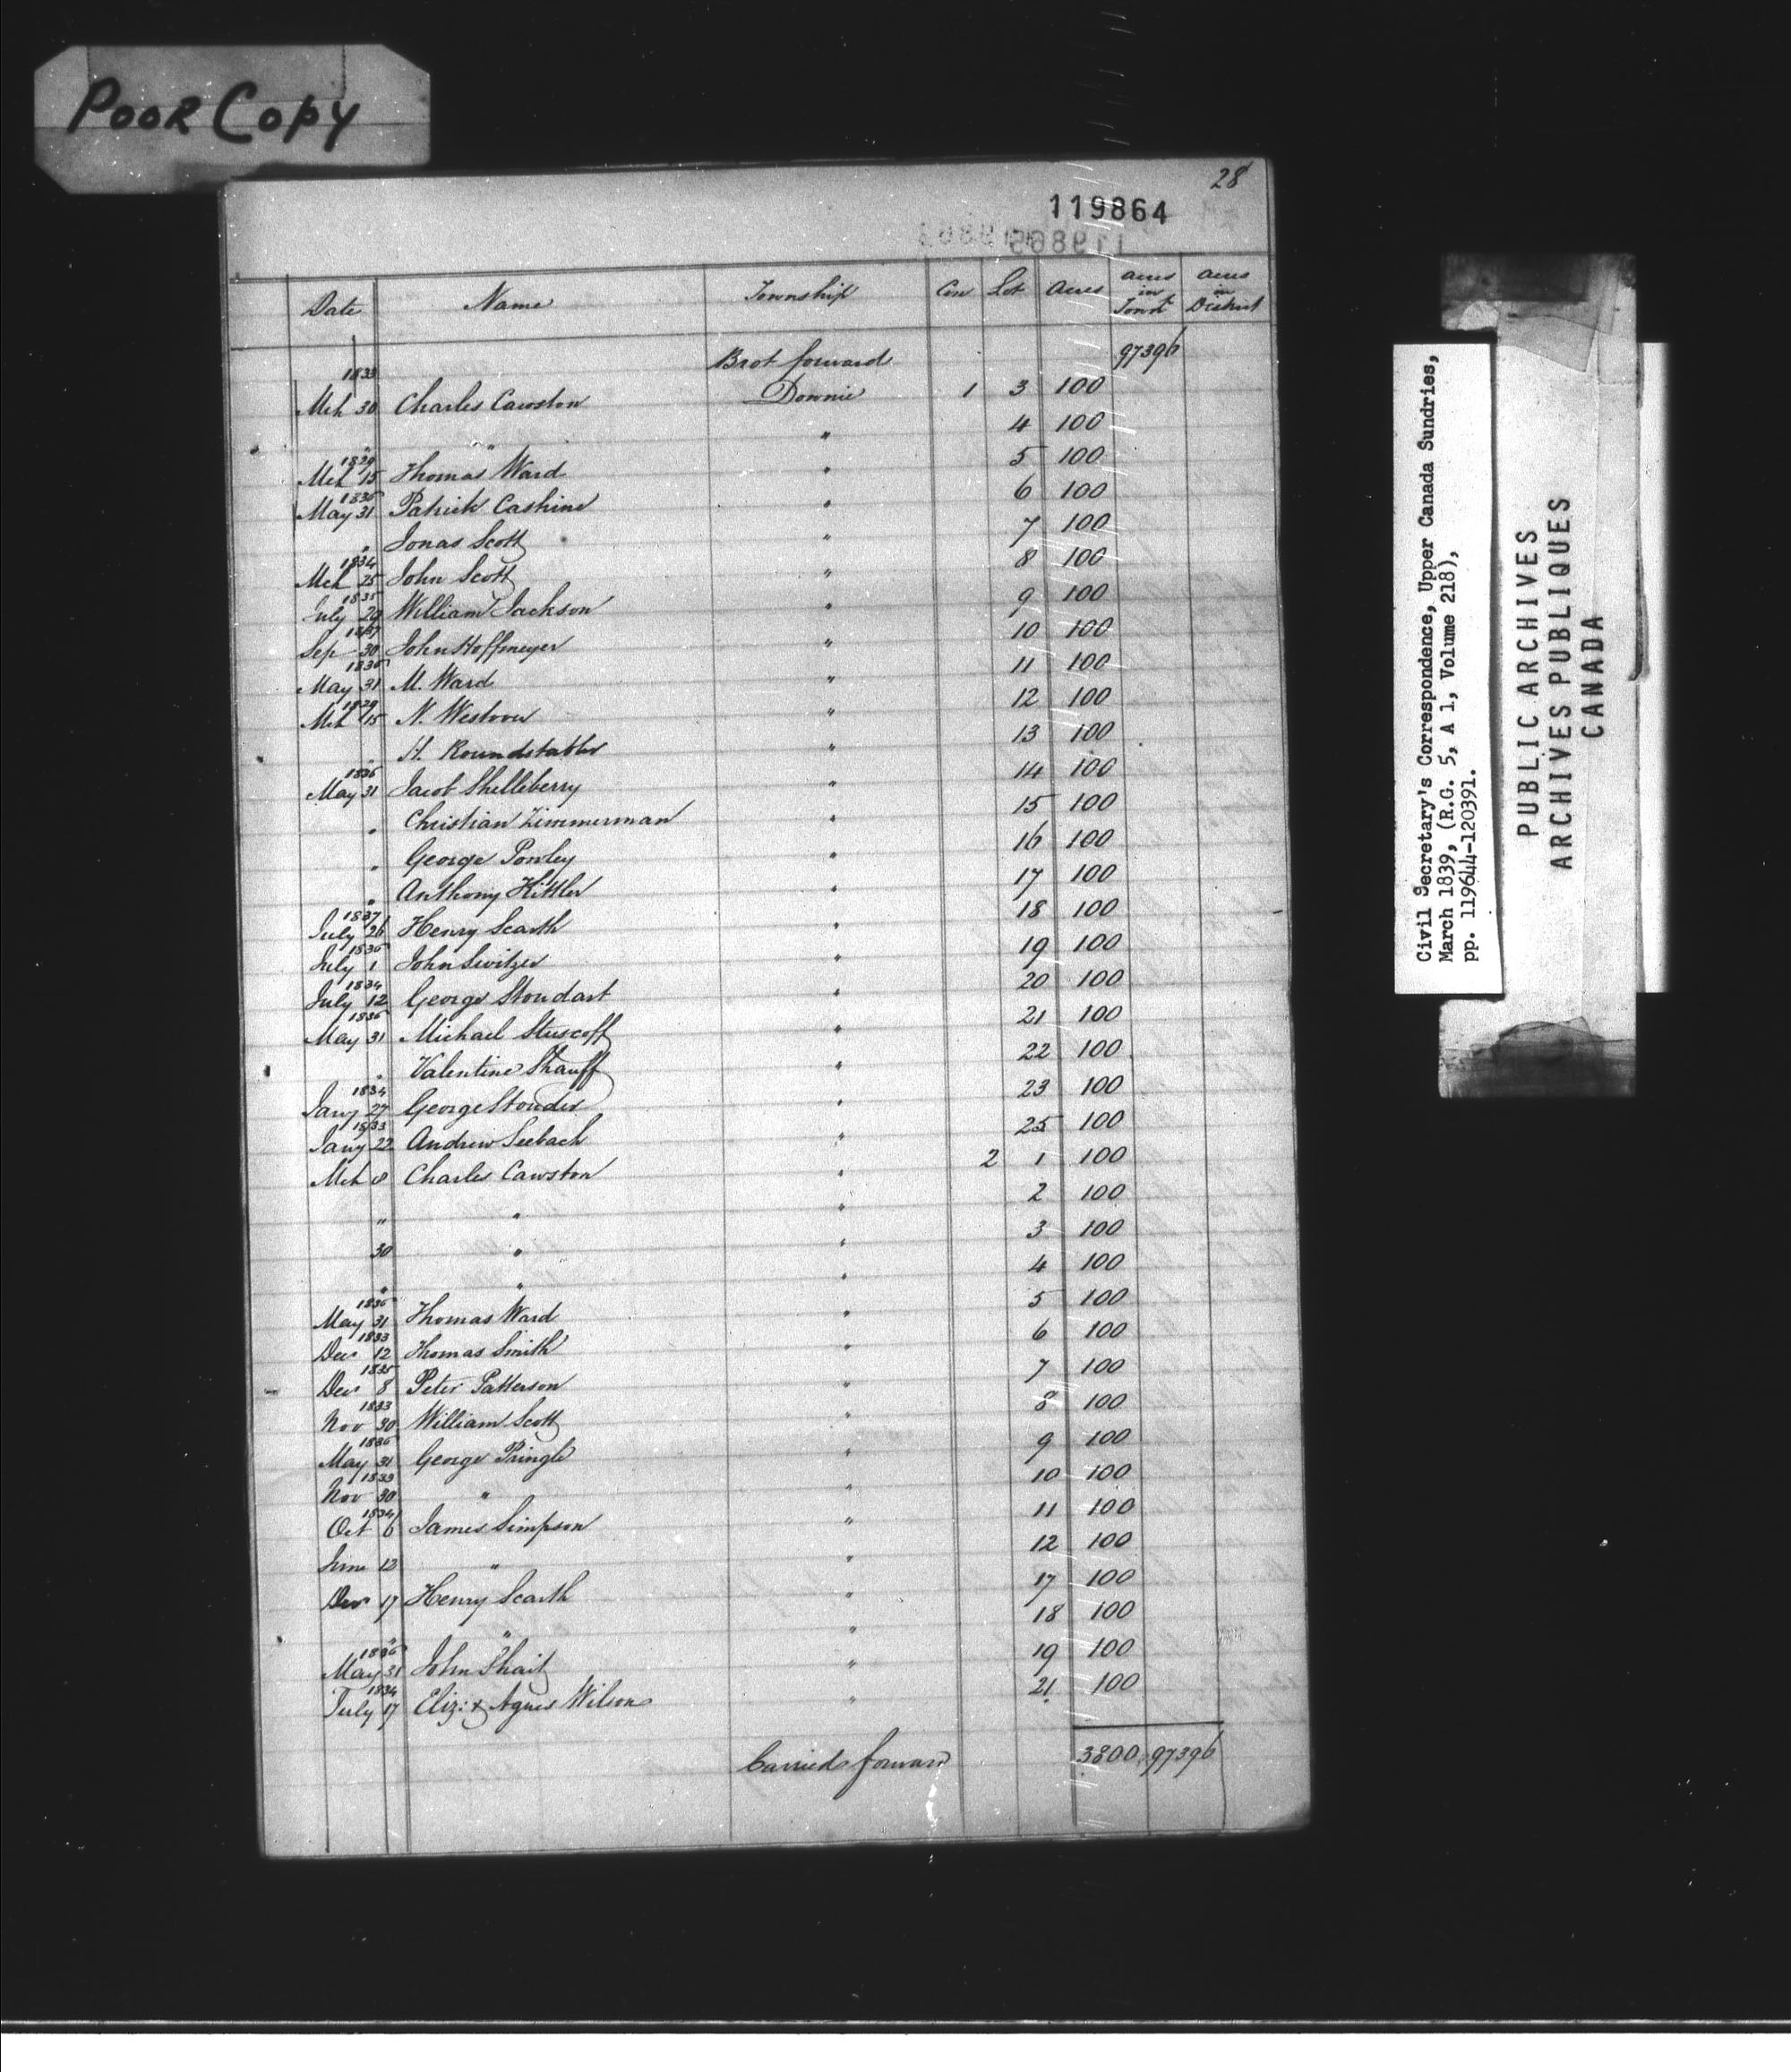 Poor Copy
28
119864
Date Name Township Con Lot Acres acres in Townp acres in District
Brot forward 97396
1833
Mch 30 Charles Cawston Downie 1 3 100
" " " 4 100
1829
Mch 15 Thomas Ward " 5 100
1836
May 31 Patrick Cashine " 6 100
" Jonas Scott " 7 100
1834
Mch 25 John Scott " 8 100
1835
July 29 William Jackson " 9 100
1837
Sep 30 John Hoffmeyer " 10 100
1836
May 31 M. Ward " 11 100
1829
Mch 15 N. Westover " 12 100
" H. Roundstabler " 13 100
1836
May 31 Jacob Shelliberry " 14 100
" Christian Zimmerman " 15 100
" George Ponley " 16 100
" Anthony Kittler " 17 100
1837
July 26 Henry Scarth " 18 100
1836
July 1 John Switzer " 19 100
1834
July 12 George Stoudart " 20 100
1836
May 31 Michael Stuscoff " 21 100
" Valentine Shauff " 22 100
1834
Jany 27 George Stouder " 23 100
1833
Jany 22 Andrew Seebach " 25 100
Mch 8 Charles Cawston " 2 1 100
" " " 2 100
30 " " 3 100
" " " 4 100
1836
May 31 Thomas Ward " 5 100
1833
Dec 12 Thomas Smith " 6 100
1835
Dec 8 Peter Patterson " 7 100
1833
Nov 30 William Scott " 8 100
1836
May 31 George Pringle " 9 100
1833
Nov 30 " " 10 100
1834
Oct 6 James Simpson " 11 100
June 12 " " 12 100
Dec 17 Henry Scarth " 17 100
" " " 18 100
1836
May 31 John Shait " 19 100
1834
July 17 Eliz: & Agnes Wilson " 21 100
Carried forward 3800 97396
Civil Secretary's Correspondence, Upper Canada Sundries,
March 1839, (R.G. 5, A 1, Volume 218),
pp. 119644-120391.
PUBLIC ARCHIVES
ARCHIVES PUBLIQUES
CANADA